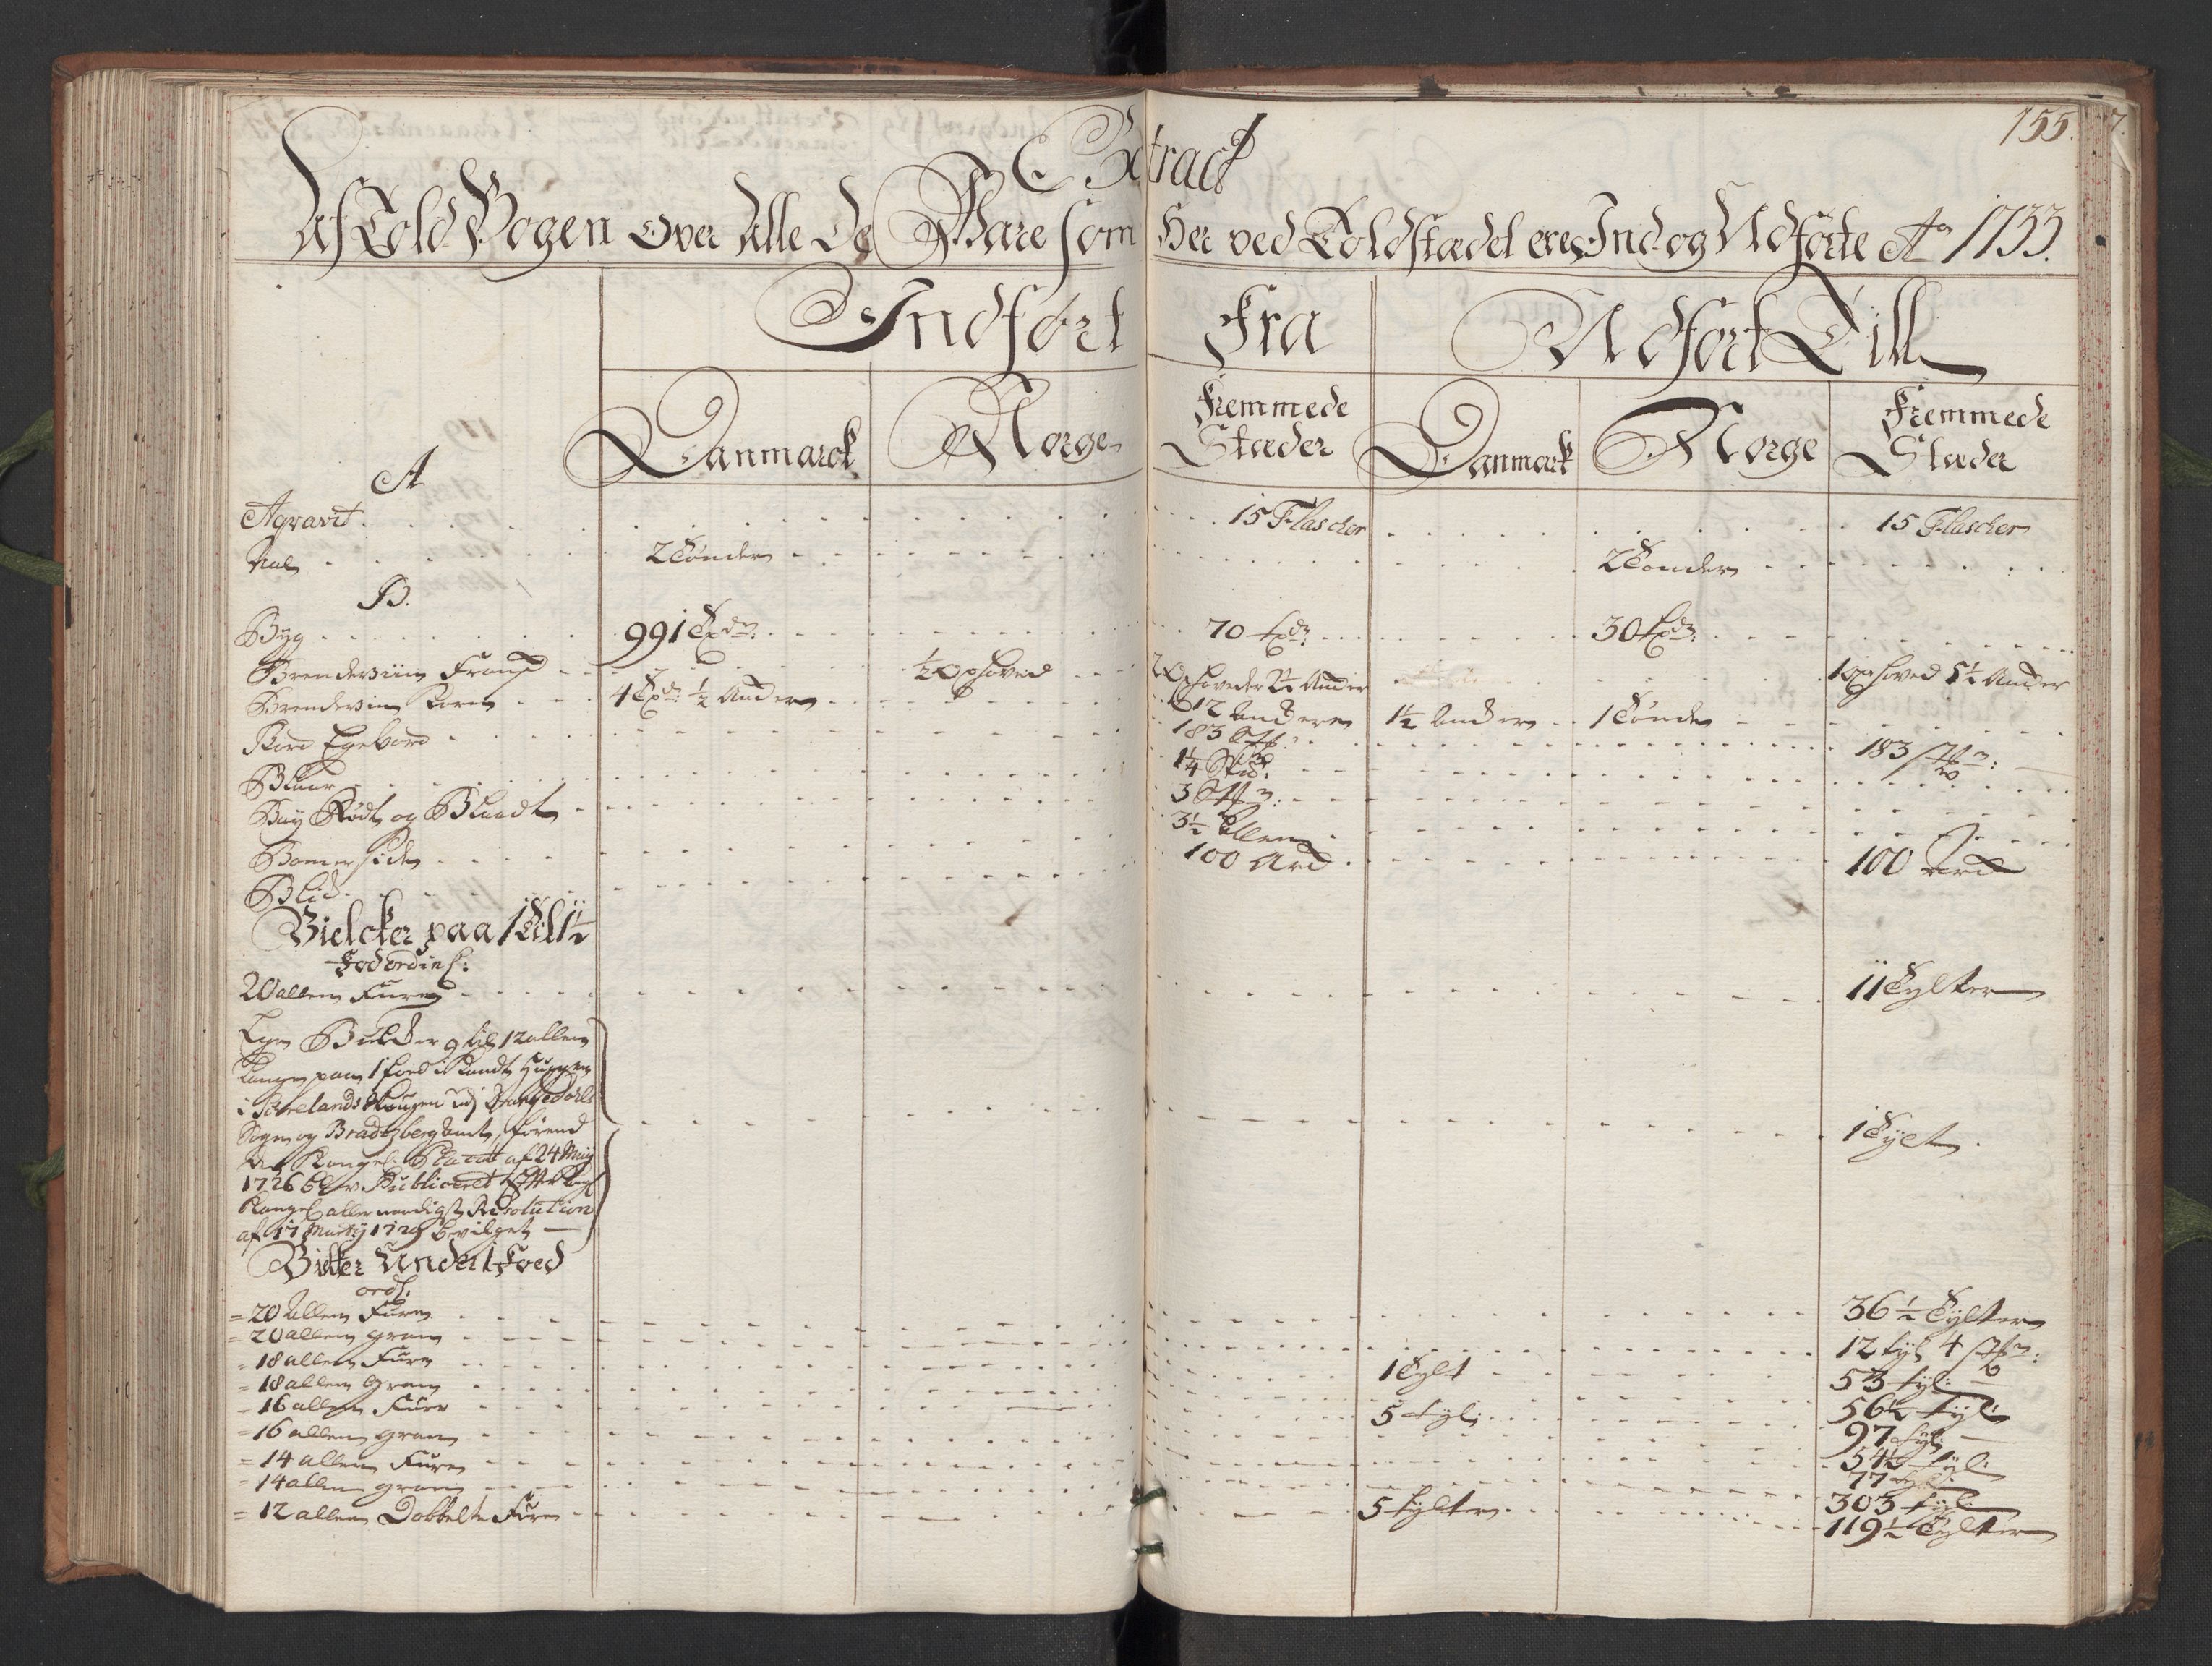 155.
7.
Extract
Af Told Bogen over Alle De Ware som Her ved Toldstædet ere Ind og Udførte Ao 1733.
Indført Fra Udført Till
Danmarck Norge Fremmede Stæder Danmark Norge Fremmede Stæder
A
Aqvavit 15 Flascher 15 Flascher
Aal 2 Tønder 2 Tønder
B.
Byg 991 Tdr: 70 tdr: 30 tdr:
Brendeviin Franß ½ Oxhoved 2 Oxhoveder 2½ Ancker 1 Oxhoved 5½ Ancker
Brendeviin Korn 4 Tdr: ½ Anckere 12 Anckere 1½ Anckere 1 Tønde
Bord Egebord 183 St: 183 st:
Blaar 1¼ Skd:
Bay Rødt og Blaadt 3 St:
Bomersiden 3½ Allen
Blid 100 Ard 100 Ard
Bielcker paa 1 Til 1½
Fod ordinl:
20 allen Furu 11 Tylter
Egen Bielcker 9 til 12 allen
Lange paa 1 foed i Kandt Huggen
i Borelands Skougen udj Drangedals
Sogn og Bradtzberg Amt, førend
den Kongel: Placat af 24 Maij
1726 blev Publiceret
Kongel allernaadigst Resolution
af 17 Martij 1729 bevilget 1 Tylt
Bielker Under 1 Foed
ordl:
= 20 Allen Furu 36½ Tylter
= 20 allen gran 12 tyl 4 st:
= 18 allen Furu 1 Tylt 53 tyl:
= 18 allen Gran 56½ tyl:
= 16 allen Furu 5 tyl: 97 tyl:
= 16 allen gran 54½ tyl:
= 14 allen Furu 77 tyl:
= 14 allen gran 303 tyl:
= 12 allen Dobbelte Furu 5 tylter 119½ Tylter